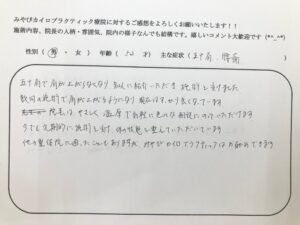 みやびカイロプラクティック療院に対するご感想をよろしくお願いいたします!!
施術内容、院長の人柄・雰囲気、院内の様子なんでも結構です。嬉しいコメント大歓迎です(*^_^*)
性別(男・女) 年齢(50才) 主な症状(五十肩 腰痛)
五十肩で肩が上がらなくなり 知人に紹介いただき 施術を受けました
数回の施術で肩が上がるようになり 痛みは なくなっています
院長は、やさしく 温厚で気軽に色々な相談にのっていただけます
今でも定期的に施術を受け、体の状態を整えていただいています
他の整体院に通ったこともありますが、みやびカイロプラクティックはお勧めできます